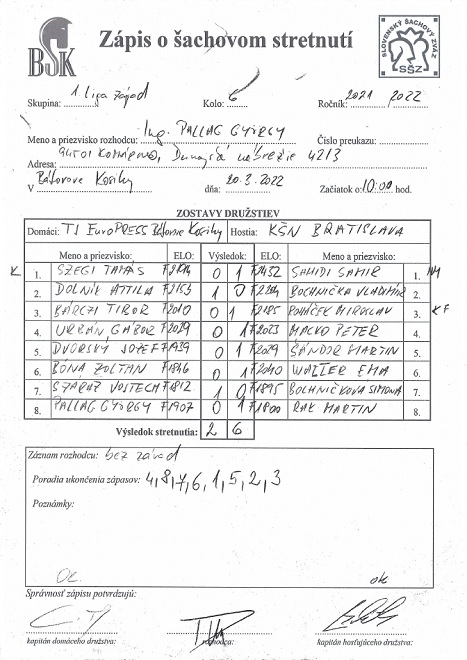 BŠK
Zápis o šachovom stretnutí
SLOVENSKÝ ŠACHOVÝ ZVÄZ
SŠZ
Skupina: 1 liga západ Kolo: 6 Ročník: 2021 2022
Meno a priezvisko rozhodcu: Ing. PALLAG GYÖRGY Číslo preukazu:
Adresa: 94501 Komárno, Dunajské nábrežie 4213
V Bátorove Kosihy dňa: 20.3.2022 Začiatok o 10:00 hod.
ZOSTAVY DRUŽSTIEV
Domáci: TJ EuroPRESS Bátorove Kosihy Hostia: KŠN BRATISLAVA
Meno a priezvisko: ELO: Výsledok: ELO: Meno a priezvisko:
K 1. SZEGI TAMÁS 0 1 F2432 SHMIDI SAMIR 1.
2. DOLNÍK ATTILA F2153 1 0 BOCHNIČKA VLADIMÍR 2.
3. BÁRCZI TIBOR F2010 0 1 F2185 ROHÁČEK MIROSLAV 3. KF
4. URBÁN GÁBOR F2029 0 1 F2023 MACKO PETER 4.
5. DVORSKÝ JOZEF F1939 0 1 F2029 ŠÁNDOR MARTIN 5.
6. BÓNA ZOLTÁN F1846 0 1 F2040 WALTER EMA 6.
7. VOJTECH F1812 1 0 F1895 BOCHNIČKOVÁ SIMONA 7.
8. PALLAG GYÖRGY F1907 0 1 F1800 RAK MARTIN 8.
Výsledok stretnutia: 2 6
Záznam rozhodcu: bez závad
Poradia ukončenia zápasov: 4,8,7,6,1,5,2,3
Poznámky:
OK. ok
Správnosť zápisu potvrdzujú:
kapitán domáceho družstva: rozhodca: kapitán hosťujúceho družstva: